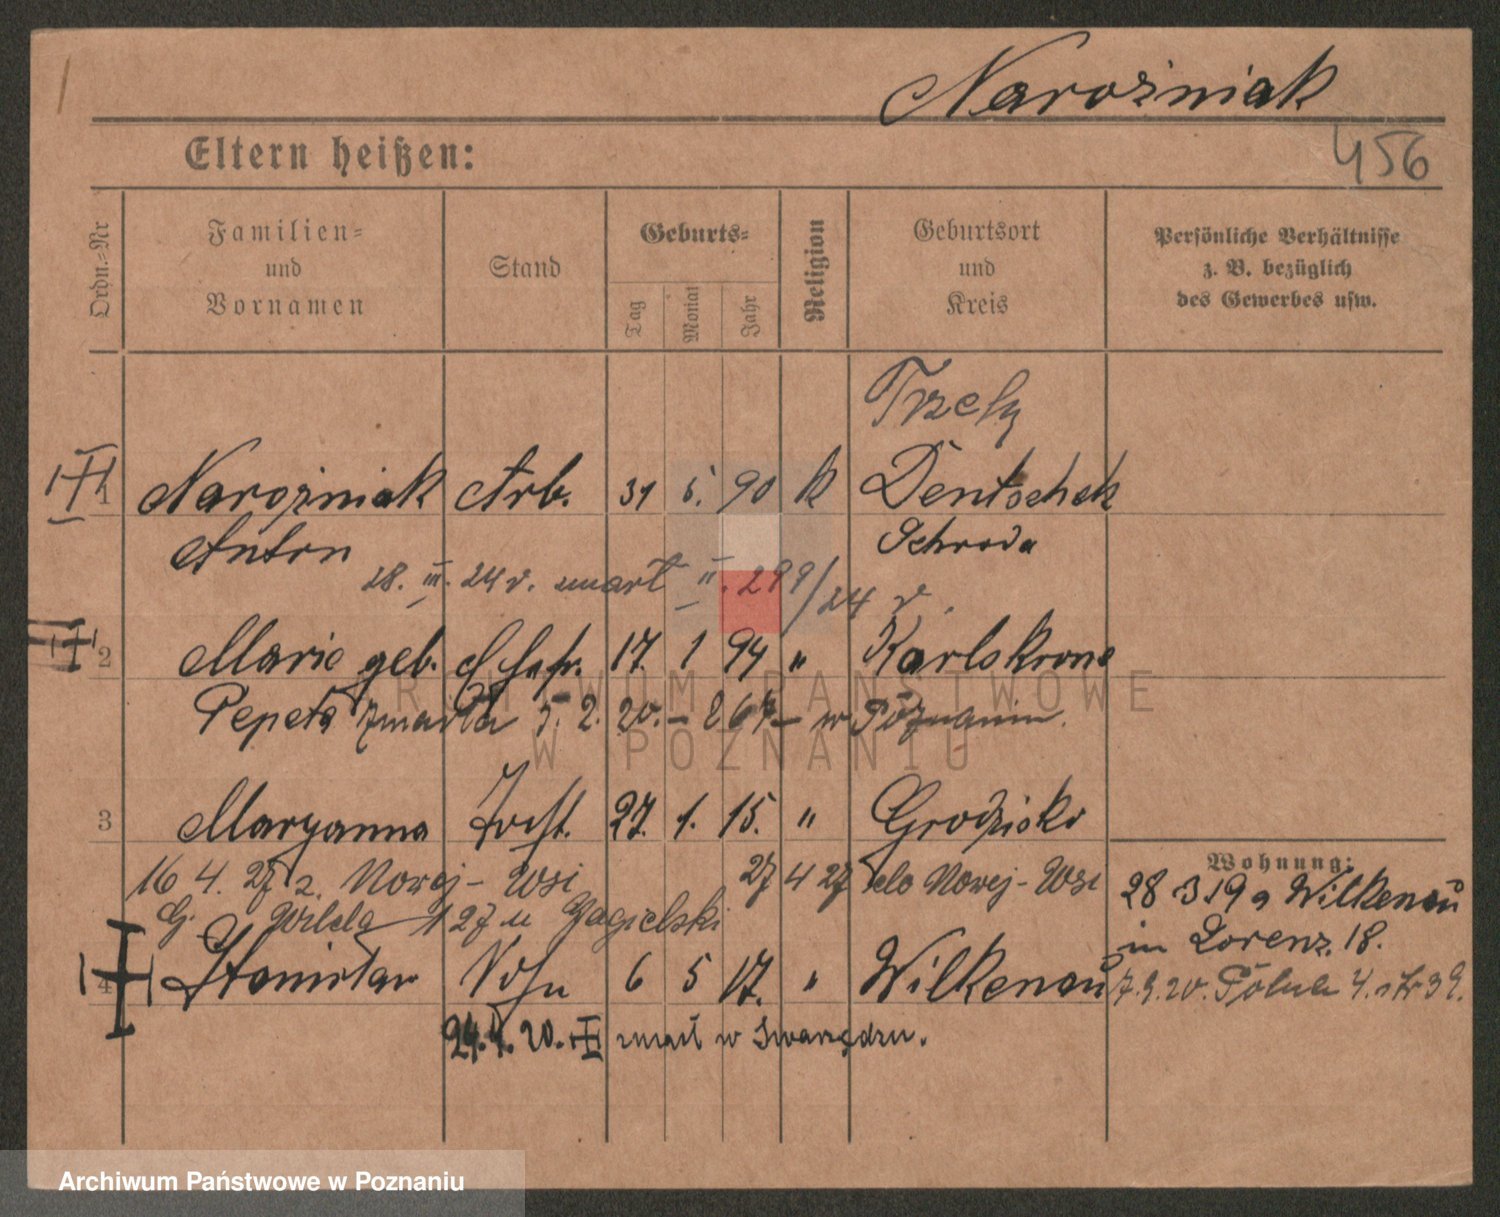 Narożniak
456
Eltern heißen:
Ordn.-Nr
Familien-
und
Vornamen
Stand
Geburts-
Tag
Monat
Jahr
Religion
Geburtsort
und
Kreis
Persönliche Verhältnisse
z. B. bezüglich
des Gewerbes usw.
1 Narożniak Arb. 31 5. 90 k Dentschek
Anton Schroda
28. III. 24 r. umarł II. 299/24 r.
2 Marie geb. 17. 1 94 " Karlskrone
Pepeta zmarła 5. 2. 20. – 267 – w Poznaniu.
3 Maryanna Tocht. 27. 1. 15. " Grodzisko
16 4. 27 z Nowej-Wsi 27 4 27 do Nowej-Wsi
G. Wilda 127 u Jagielski
4 Stanislaw Sohn 6 5 17. " Wilkenau
24.4.20. zmarł w Swarzędzu.
Wohnung:
28 3 19 a Wilkenau
in Lorenz. 18.
7.9.20. 4. str 39.
ARCHIWUM PAŃSTWOWE
W POZNANIU
Archiwum Państwowe w Poznaniu